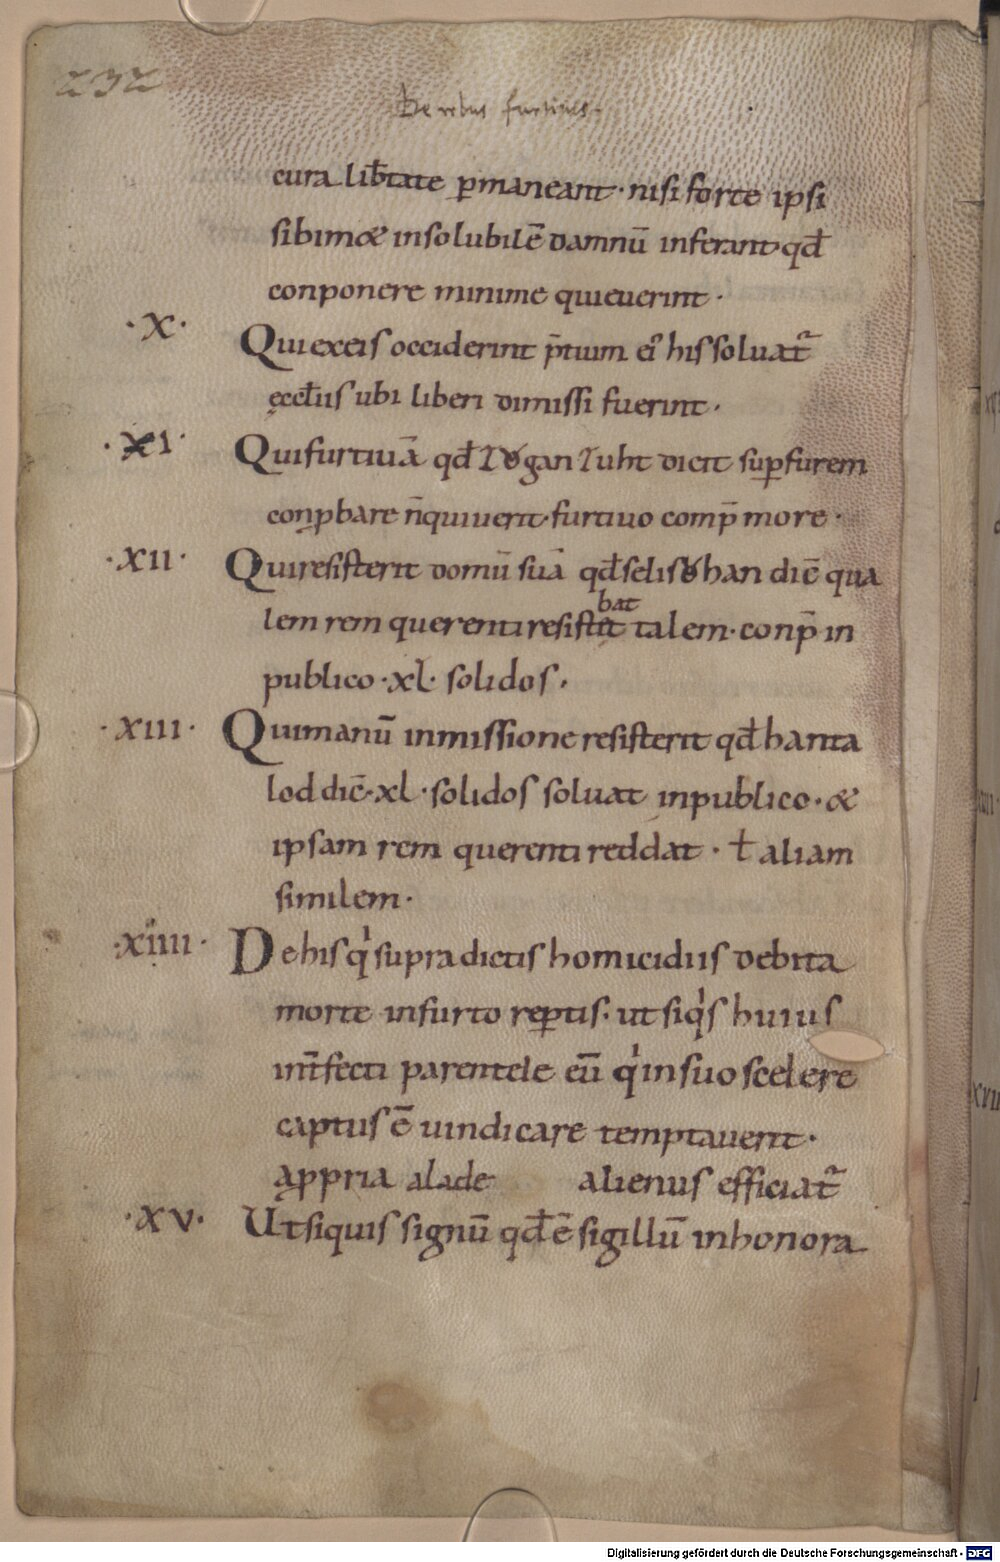 232
De rebus furtiuis.
cura lib̄tate ꝑmaneant· nisi forte ipsi
sibimet insolubilē damnū inferant qđ
conponere minime quieuerint·
·X· Qui ex eis occiderint p̄tium ei᷒ his soluat᷑
ęccl̄iis ubi liberi dimissi fuerint·
·XI· Qui furtiuā qđ zaugan zuht dicit sup furem
conꝓbare n̄quiuerit· furtiuo comp̄ more·
·XII· Qui resisterit domū suā qđ selisohan dic̄ qua
lem rem querenti resistebat talem· conp̄ in
publico ·xl· solidos·
·XIII· Qui manū inmissione resisterit qđ hanta
lod dic̄· xl· solidos soluat in publico· &
ipsam rem querenti reddat· ł aliam
similem·
·XIIII· De his qͥ supra dictis homicidiis debita
morte in furto reꝑtis· ut siqͥs huius
int̄fecti parentele eū qͥ in suo scelere
captus ē uindicare temptauerit·
appria alade alienus efficiat᷑
·XV· Ut siquis signū qđ ē sigillū inhonora
Digitalisierung gefördert durch die Deutsche Forschungsgemeinschaft - DFG